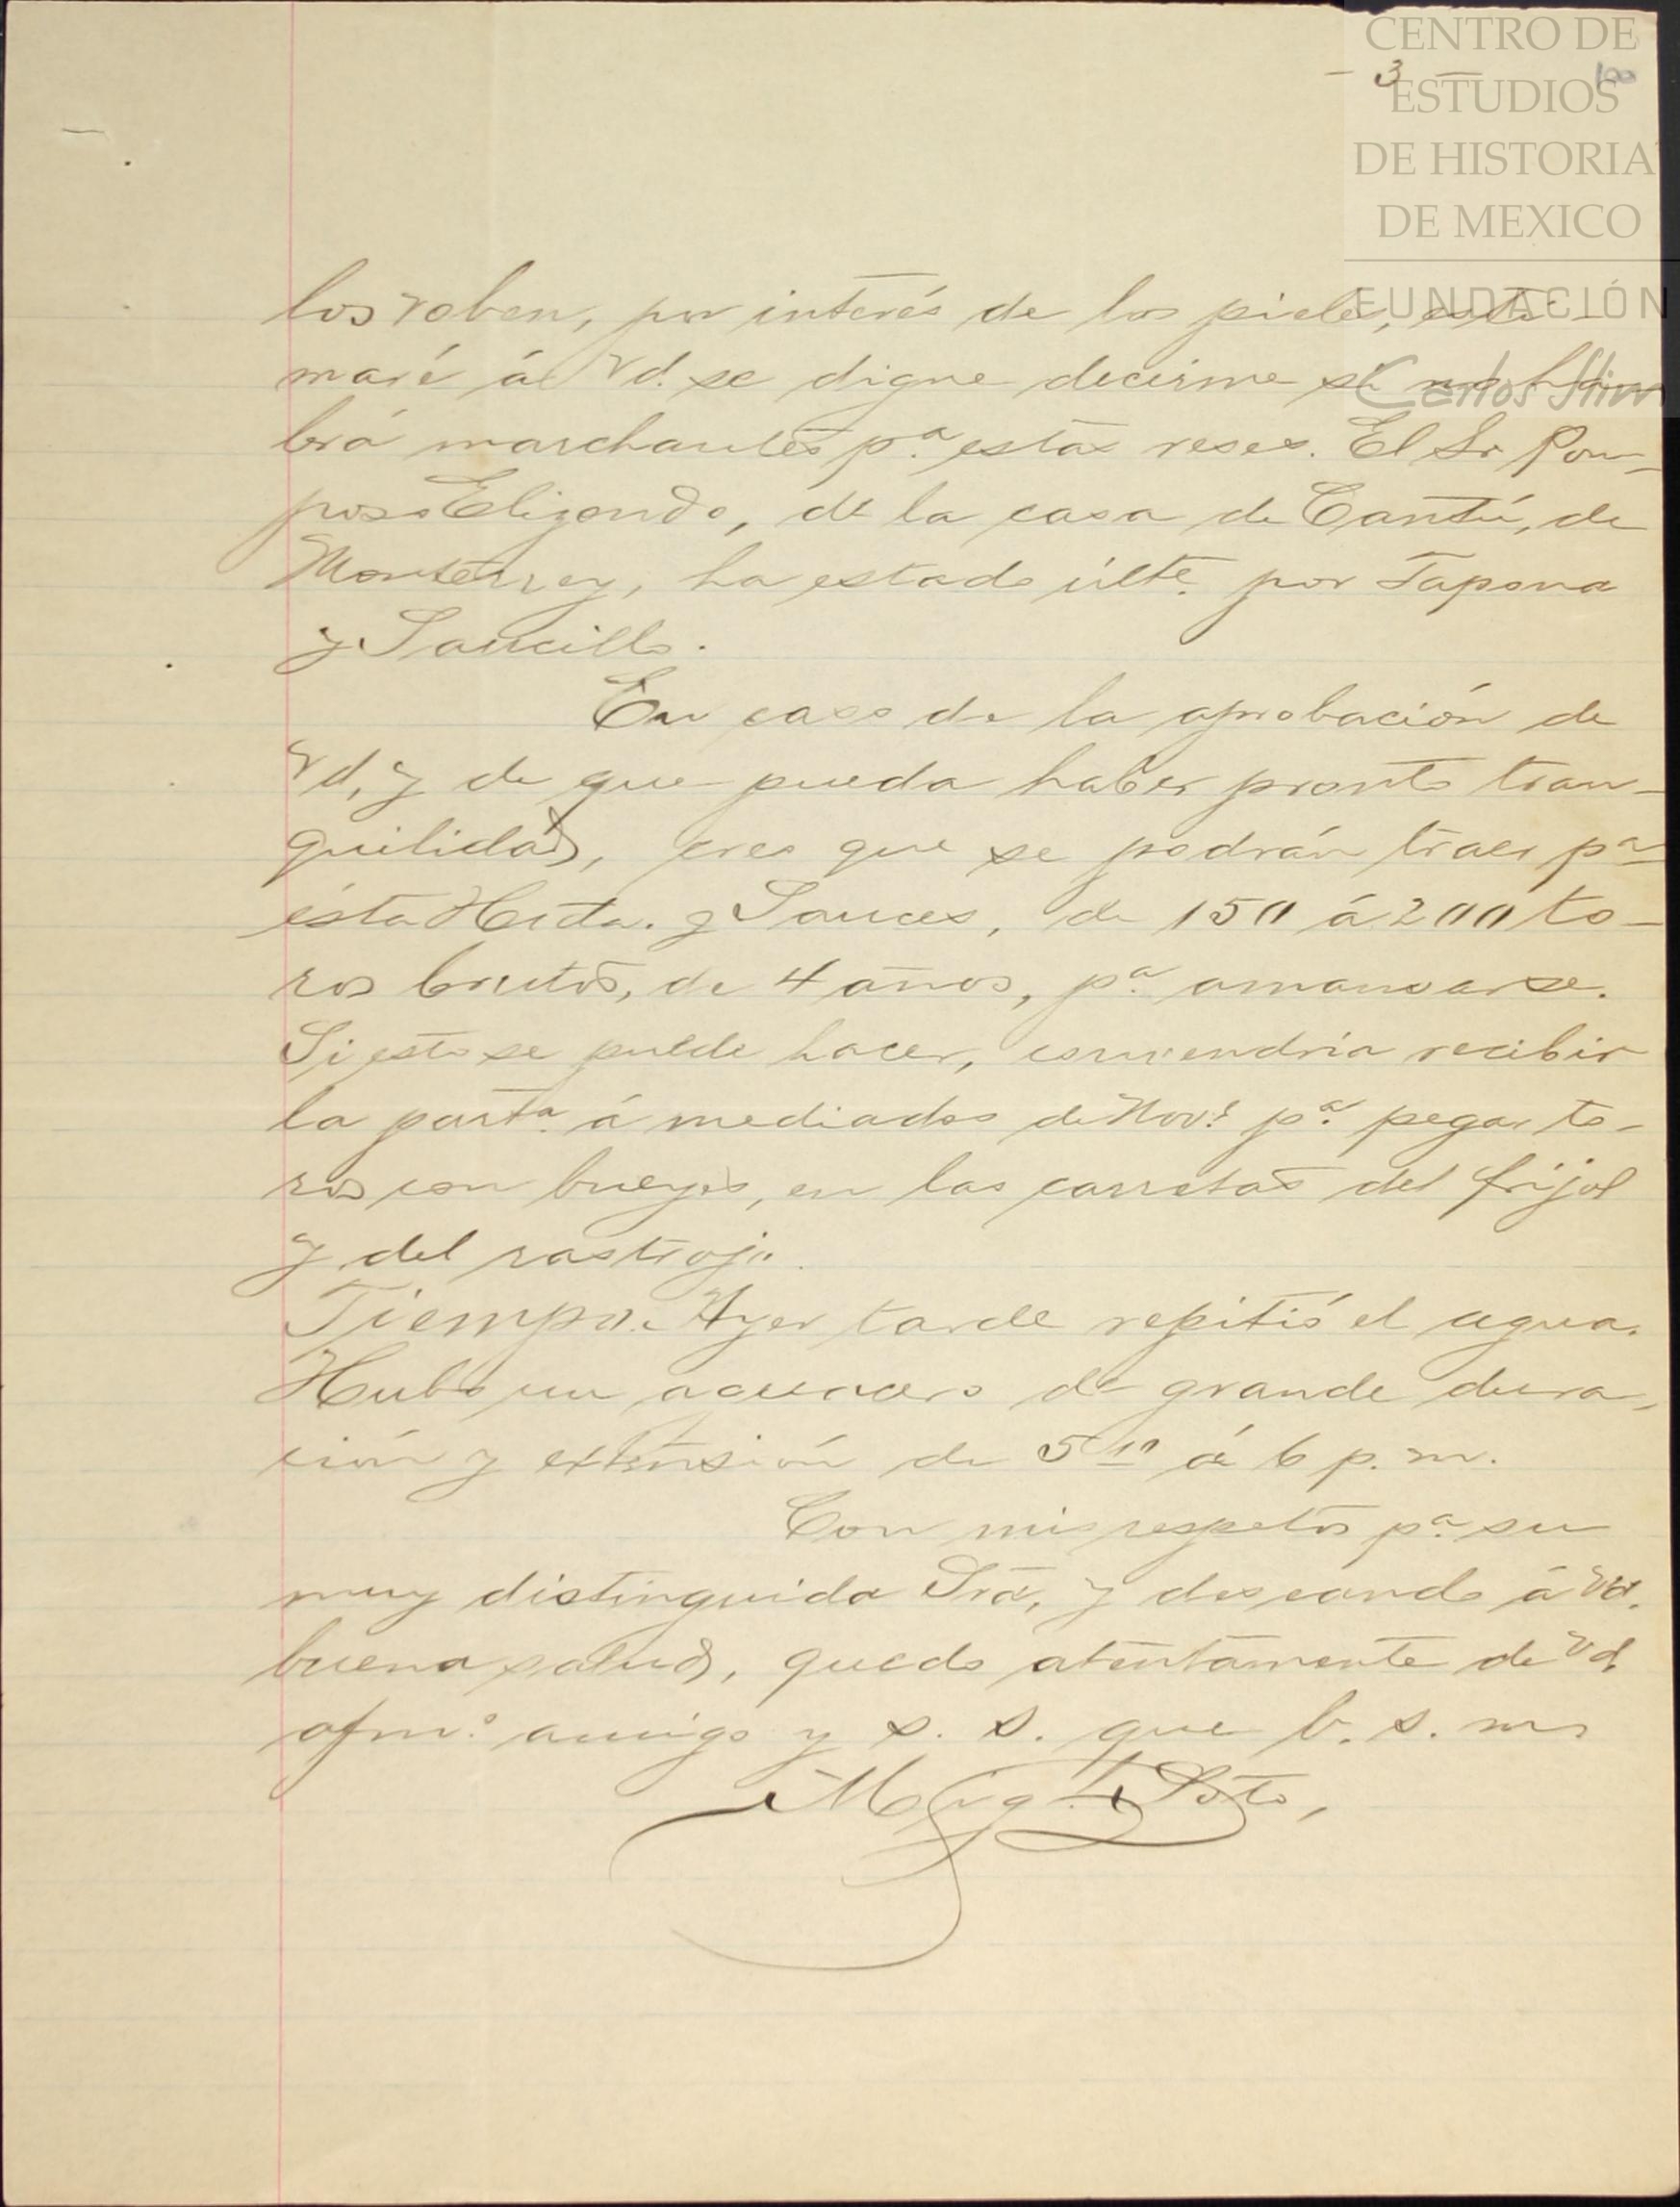 CENTRO DE
- 3 -
ESTUDIOS
DE HISTORIA
DE MEXICO
FUNDACIÓN
Carlos Slim
los roben, por interés de las pieles, esti-
maré á Vd. se digne decirme si no ha-
brá marchantes pª estas reses. El Sr Pom-
poso Elizondo, de la casa de Cantú, de
Monterrey, ha estado últe. por Tapona
y Saucillo.
En caso de la aprobación de
Vd, y de que pueda haber pronto tran-
quilidad, creo que se podrán traer pª
ésta Hcda. y Sauces, de 150 á 200 to-
ros brutos, de 4 años, pª amansarse.
Si esto se puede hacer, convendría recibir
la partª á mediados de Nove pª pegar to-
ros con bueyes, en las carretas del frijol
y del rastrojo.
Tiempo. Ayer tarde repitió el agua.
Hubo un aguacero de grande dura-
ción y extensión de 5 10 á 6 p. m.
Con mis respetos pª su
muy distinguida Sra, y deseando á Vd.
buena salud, quedo atentamente de Vd.
afmº amigo y s. s. que b. s. m.
Migl. Soto,